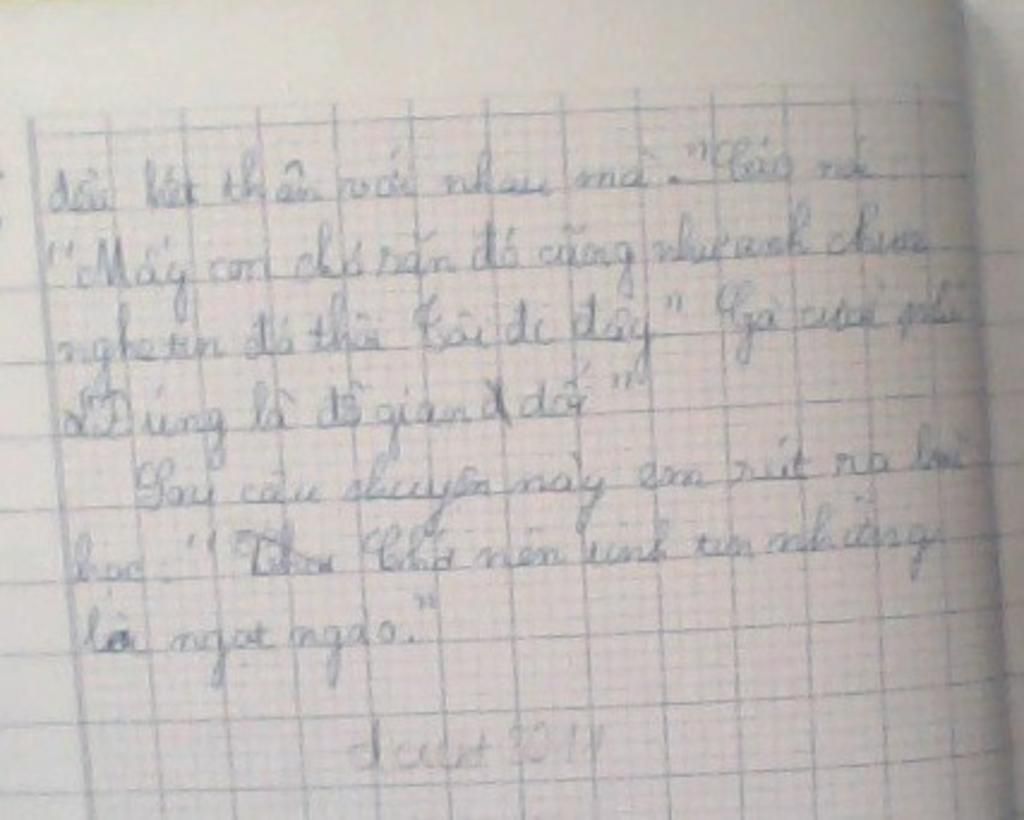 đều kết thân với nhau mà." Cáo nó
"Mấy con chó săn đó cũng như anh chưa
nghe tin đó thôi tôi đi đây" Gà cười
"Đúng là đồ gian dối""
Sau câu chuyện này em rút ra bài
học "Chớ nên tinh tin những
lời ngọt ngào."